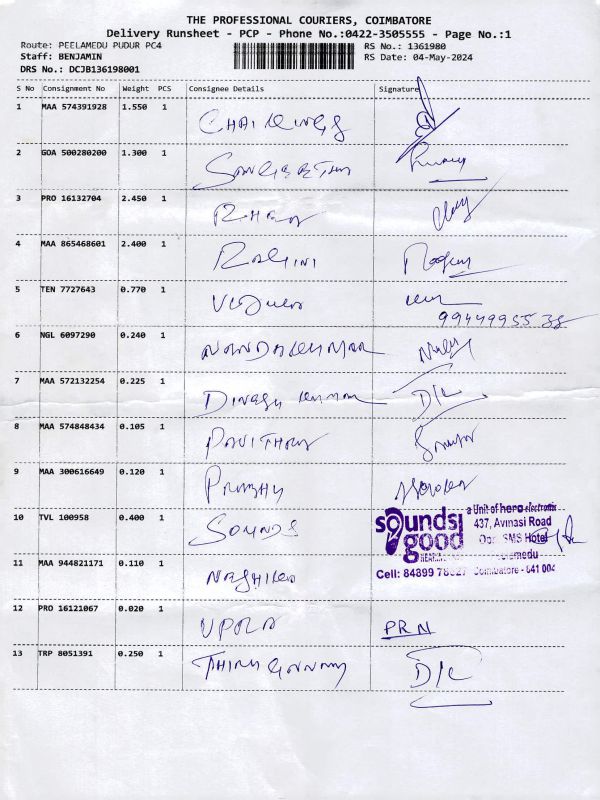 THE PROFESSIONAL COURIERS, COIMBATORE
Delivery Runsheet - PCP - Phone No.:0422-3505555 - Page No.:1
Route: PEELAMEDU PUDUR PC4 RS No.: 1361980
Staff: BENJAMIN RS Date: 04-May-2024
DRS No.: DCJB136198001
S No Consignment No Weight PCS Consignee Details Signature
1 MAA 574391928 1.550 1
2 GOA 500280200 1.300 1
3 PRO 16132704 2.450 1
4 MAA 865468601 2.400 1 RAGINI
5 TEN 7727643 0.770 1
99449955 38
6 NGL 6097290 0.240 1 NANDAKUMAR
7 MAA 572132254 0.225 1 DINESH KUMAR D/L
8 MAA 574848434 0.105 1 PAVITHRA
9 MAA 300616649 0.120 1 PRABHU
10 TVL 100958 0.400 1 SOUNDS
sounds good a Unit of hero electronix
437, Avinasi Road
Opp. SMS Hotel
Cell: 84899 Coimbatore - 641 004
11 MAA 944821171 0.110 1
12 PRO 16121067 0.020 1 PRN
13 TRP 8051391 0.250 1 D/L